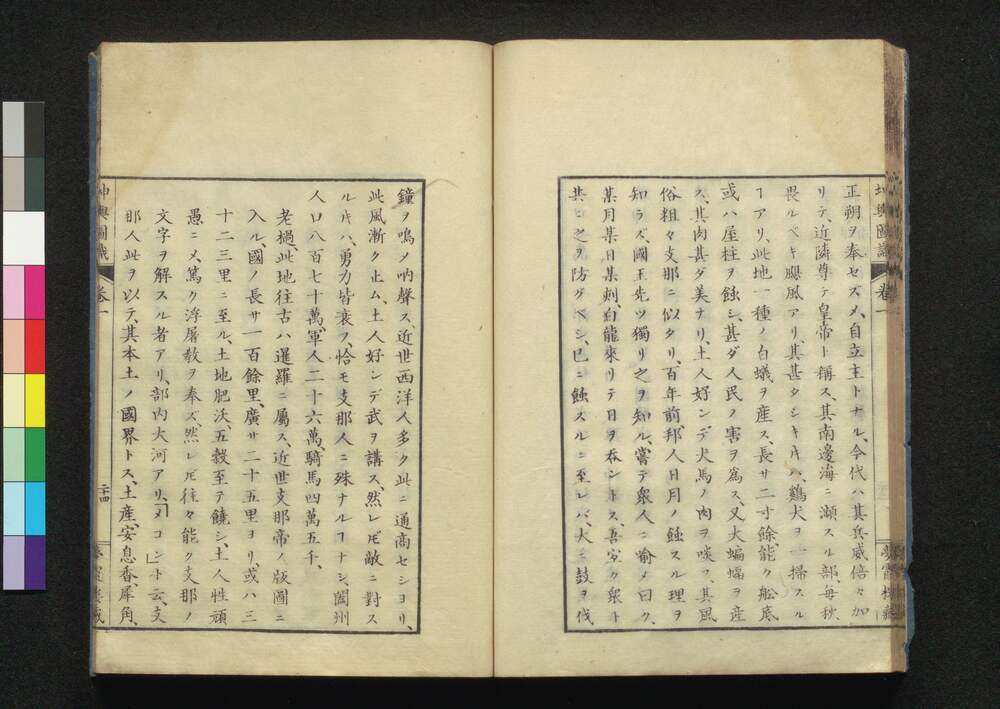 正朔ヲ奉セズメ、自立主トナル、今代ハ其兵威倍々加
リテ、近隣尊テ皇帝ト稱ス、其南邊海ニ瀕スル部、毎秋
畏ルベキ颶風アリ、其甚タシキ𪜈ハ、鷄犬ヲ一掃スル
ヿアリ、此地一種ノ白蟻ヲ産ス、長サ二寸餘、能ク舩底
或ハ屋柱ヲ蝕シ、甚ダ人民ノ害ヲ爲ス、又大蝙蝠ヲ産
ス、其肉甚ダ美ナリ、土人好ンデ犬馬ノ肉ヲ啖フ、其風
俗粗々支那ニ似タリ、百年前、邦人日月ノ蝕スル理ヲ
知ラズ、國王先ツ獨リ之ヲ知ル、嘗テ衆人ニ諭メ曰ク、
某月某日某刻、白龍來リテ日ヲ呑ントス、吾汝ノ衆ト
共ニ之ヲ防グベシ、已ニ蝕スルニ至レバ、大ニ鼓ヲ伐
鐘ヲ鳴メ吶聲ス、近世西洋人多ク此ニ通商セシヨリ、
此風漸ク止ム、土人好ンデ武ヲ講ス、然レ𪜈敵ニ對ス
ル𪜈ハ、勇力皆衰フ、恰モ支那人ニ殊ナルヿナシ、闔州
人口八百七十萬、軍人二十六萬、騎馬四萬五千、
老撾、此地往古ハ暹羅ニ屬ス、近世支那帝ノ版圖ニ
入ル、國ノ長サ一百餘里、廣サ二十五里ヨリ或ハ三
十二三里ニ至ル、土地肥沃、五穀至テ饒シ、土人性頑
愚ニメ、篤ク浮屠教ヲ奉ズ、然レ𪜈往々能ク支那ノ
文字ヲ解スル者アリ、部内大河アリ、「メコン」ト云、支
那人此ヲ以テ、其本土ノ國界トス、土産、安息香、犀角、
坤輿圖識
卷一
二十四